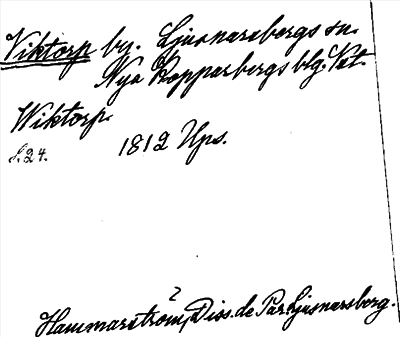 Viktorp by. Ljusnarsbergs sn.
Nya Kopparbergs blg. Vst.
Wiktorp.
S. 24. 1812 Ups.
Hammarström, Diss. de Par. Ljusnarsberg.